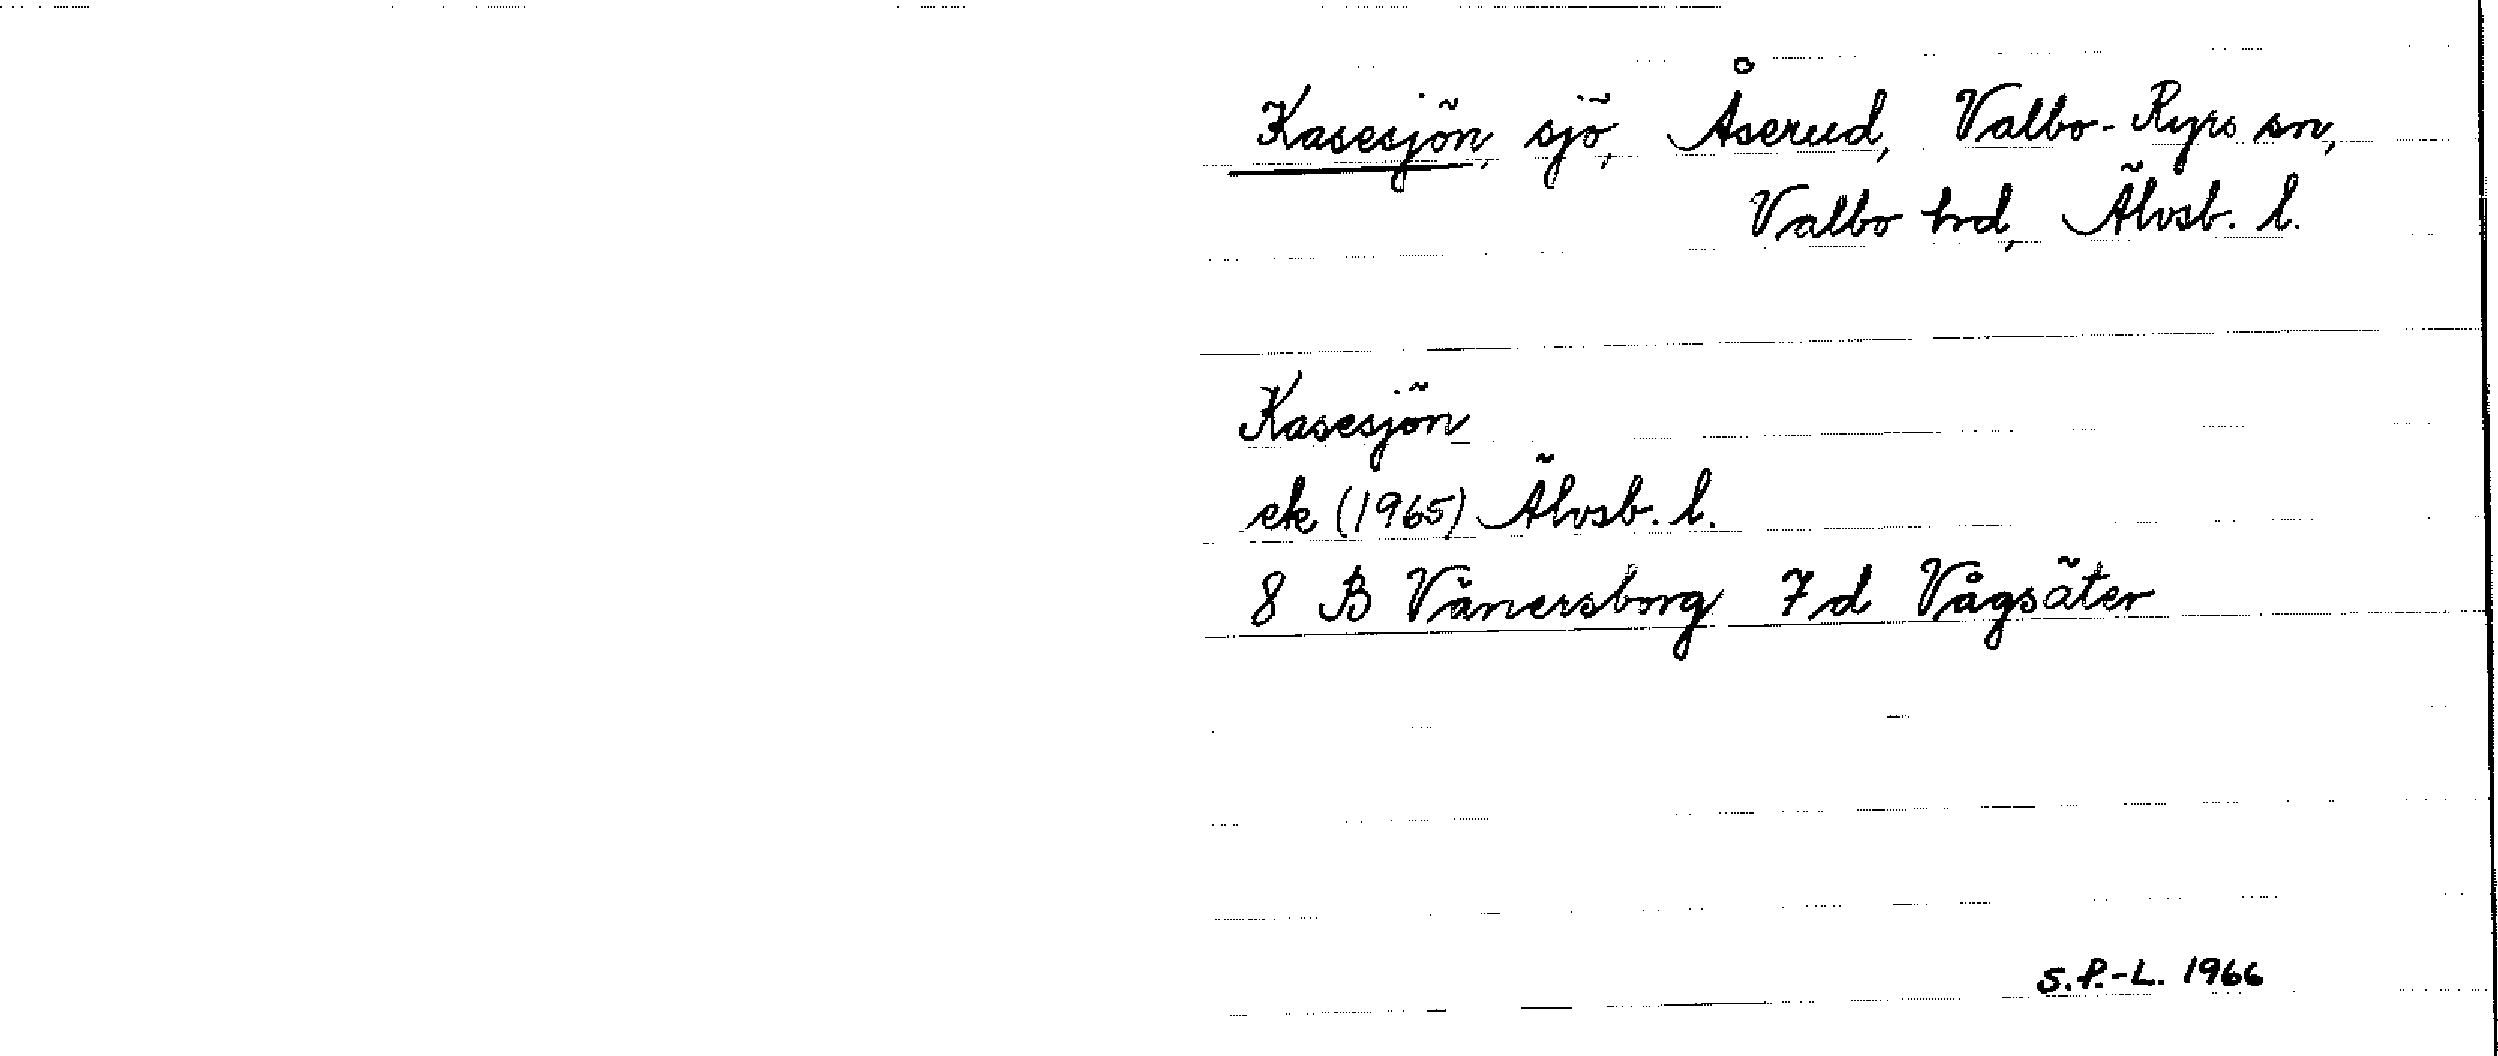 Kasesjön, sjö, Åserud, Valbo-Ryrs sn,
Valbo hd, Älvsb. l.
Kasesjön
ek (1965) Älvsb. l.
8 B Vänersborg 7d Vågsäter
S.P.-L. 1966